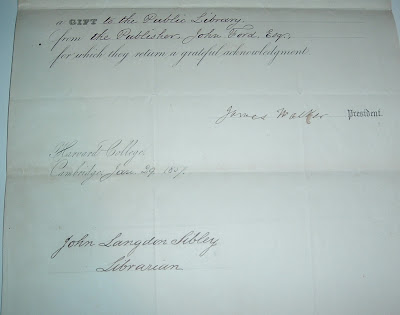 a GIFT to the Public Library.
from the Publisher, John Ford, Esq.
for which they return a grateful acknowledgment.
James Walker President.
Harvard College,
Cambridge, Jan. 29. 1857.
John Langdon Sibley
Librarian.